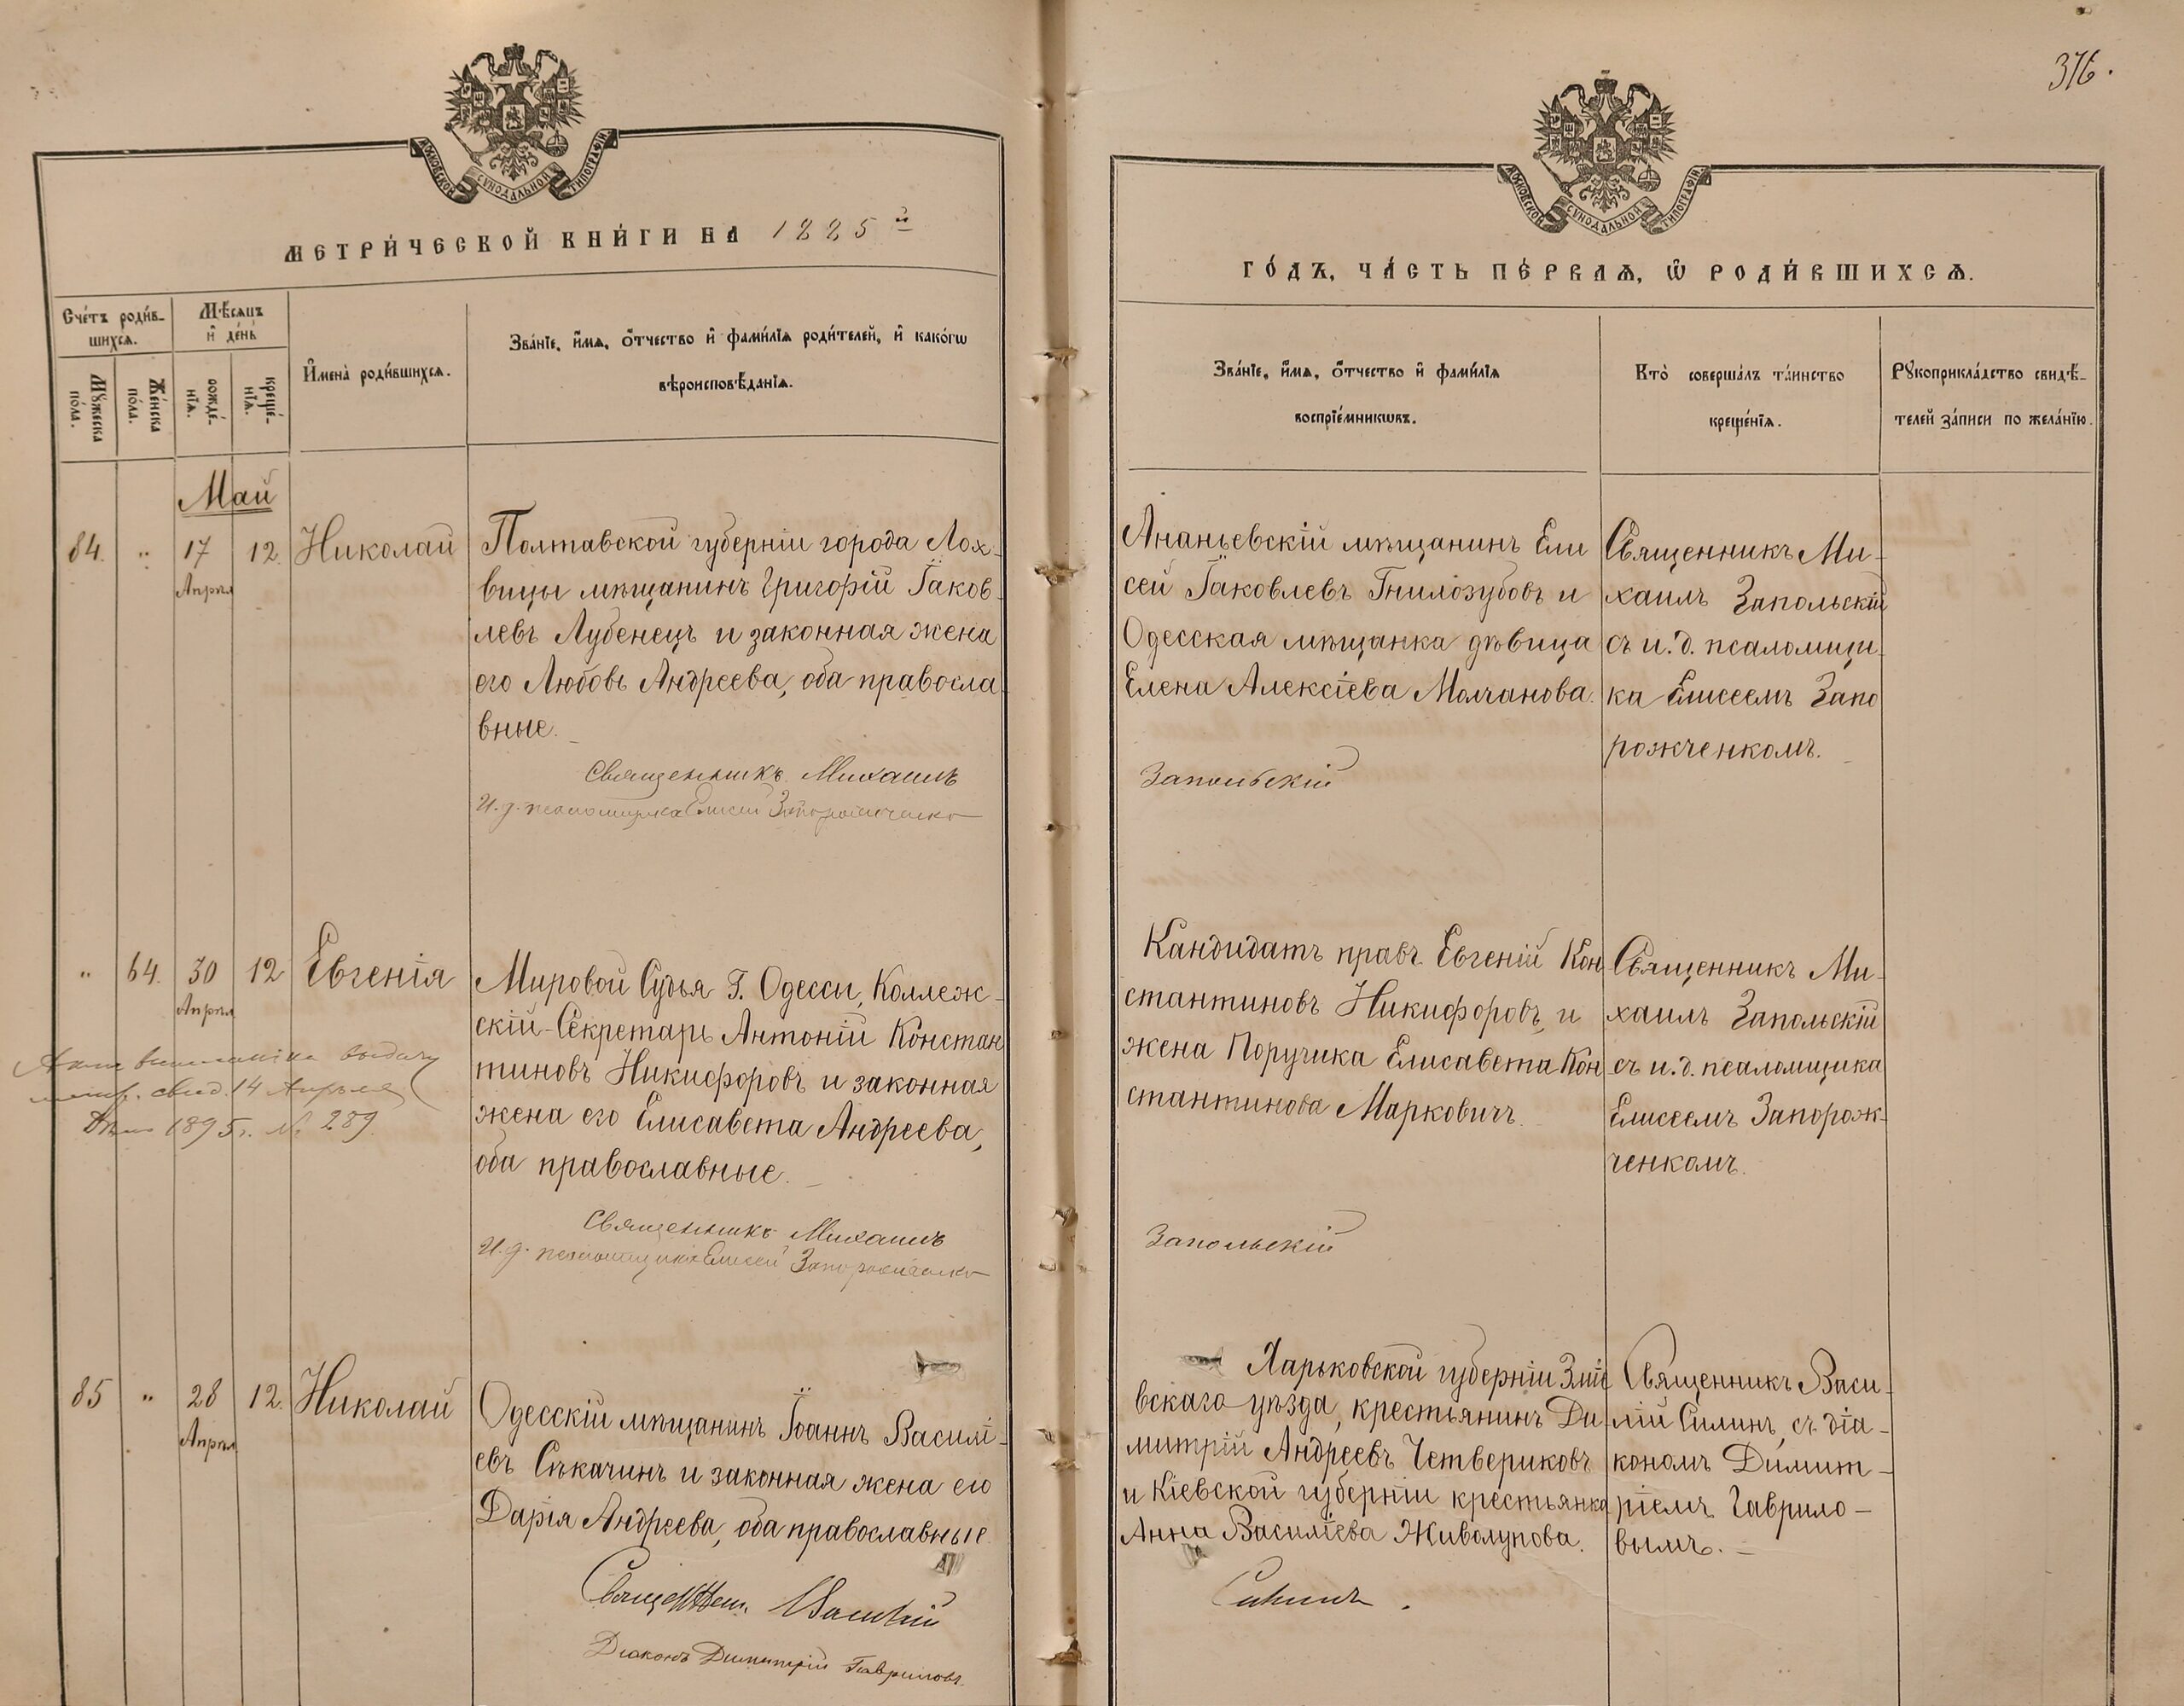 376.
МОСКОВСКОЙ СУНОДАЛЬНОЙ ТИПОГРАФІИ
МОСКОВСКОЙ СУНОДАЛЬНОЙ ТИПОГРАФІИ
МЕТРИ́ЧЕСКОЙ КНИ́ГИ НА 1885й
ГО́ДЪ, ЧА́СТЬ ПЕ́РВАѦ, Ѿ РОДИ́ВШИХСѦ.
Сче́тъ роди́в-
шихсѧ.
Мꙋжеска
по́ла.
Же́нска
по́ла.
Мѣ́сѧцъ
и҆ де́нь
рожде́-
нїѧ.
креще́-
нїѧ.
И҆мена̀ роди́вшихсѧ.
Зва́нїе, и҆́мѧ, ѻ҆́тчество и҆ фами́лїѧ роди́телей, и҆ како́гѡ
вѣроисповѣ́данїѧ.
Зва́нїе, и҆́мѧ, ѻ҆́тчество и҆ фами́лїѧ
воспрїе́мникѡвъ.
Кто̀ соверша́лъ та́инство
креще́нїѧ.
Рꙋкоприкла́дство свидѣ́-
телей за́писи по жела́нїю.
Май
84. " 17 12. Николай
Апрѣл
Полтавской губерніи города Лох-
вицы мѣщанинъ Григорій Іаков-
левъ Лубенецъ и законная жена
его Любовь Андреева, оба правосла-
вные.
Священникъ Михаилъ
И. д. псаломщика Елисей Запорожченко
Ананьевскій мѣщанинъ Ели
сей Іаковлевъ Гнилозубовъ и
Одесская мѣщанка дѣвица
Елена Алексіева Молчанова.
Запольскій
Священникъ Ми-
хаилъ Запольскій
съ и. д. псаломщи-
ка Елисеемъ Запо
рожченкомъ.
" 64. 30 12 Евгенія
Апрѣл
выдачу
метр. свид. 14 Апрѣля
1895 г. № 289.
Мировой Судья Г. Одессы, Коллеж-
скій-Секретарь Антоній Констан
тиновъ Никифоровъ и законная
жена его Елисавета Андреева,
оба православные.
Священникъ Михаилъ
И. д. псаломщика Елисей Запорожченко
Кандидатъ правъ Евгеній Кон
стантиновъ Никифоровъ, и
жена Поручика Елисавета Кон
стантинова Марковичъ.
Запольскій
Священникъ Ми-
хаилъ Запольскій
съ и. д. псаломщика
Елисеемъ Запорож-
ченкомъ.
85 " 28 12. Николай
Апрѣл
Одесскій мѣщанинъ Іоаннъ Василі-
евъ Сѣкачинъ и законная жена его
Дарія Андреева, оба православные
Священн. Василій
Діаконъ Димитрій Гавриловъ
Харьковской губерніи Зміе
вскаго уѣзда, крестьянинъ Ди
митрій Андреевъ Четвериковъ
и Кіевской губерніи крестьянка
Анна Василіева Живолупова.
Силинъ.
Священникъ Васи-
лій Силинъ, съ діа-
кономъ Димит-
ріемъ Гаврило-
вымъ.